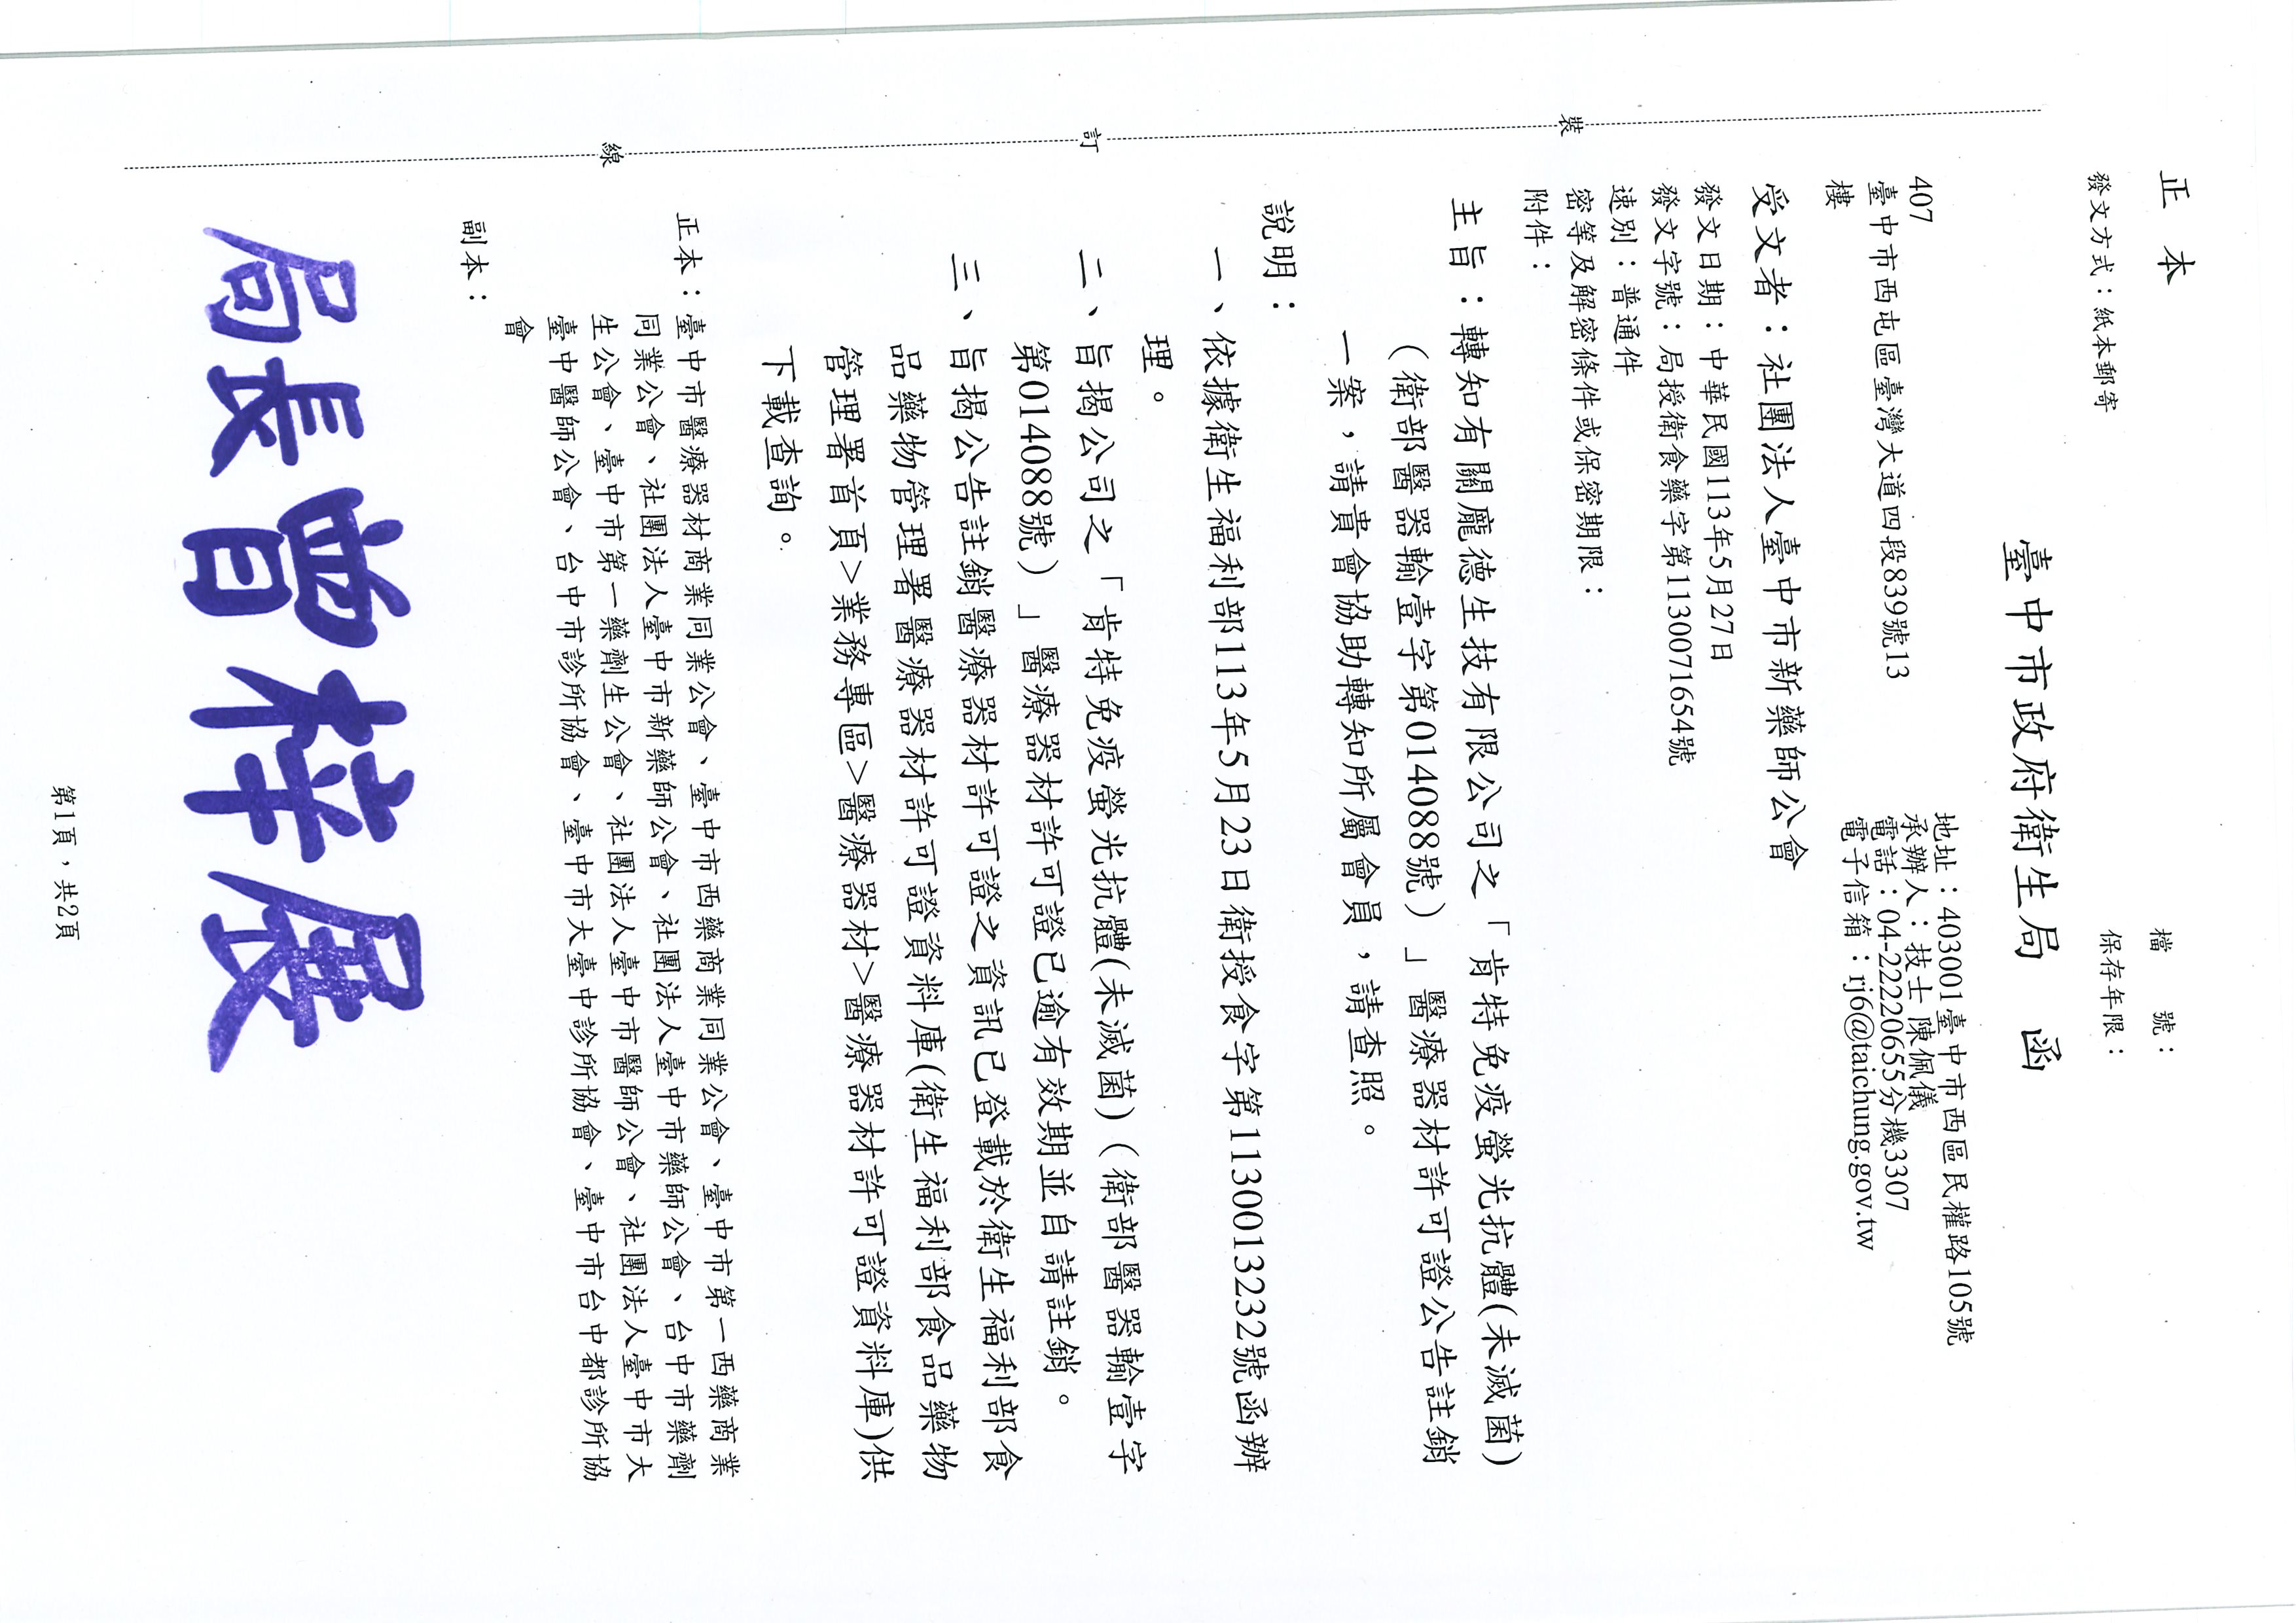 正本
檔　　號：
保存年限：
發文方式：紙本郵寄
臺中市政府衛生局　函
地址：403001臺中市西區民權路105號
承辦人：技士 陳佩儀
電話：04-22220655分機3307
電子信箱：rj6@taichung.gov.tw
407
臺中市西屯區臺灣大道四段839號13
樓
受文者：社團法人臺中市新藥師公會
發文日期：中華民國113年5月27日
發文字號：局授衛食藥字第1130071654號
速別：普通件
密等及解密條件或保密期限：
附件：
主旨：轉知有關龐德生技有限公司之「肯特免疫螢光抗體(未滅菌)
（衛部醫器輸壹字第014088號）」醫療器材許可證公告註銷
一案，請貴會協助轉知所屬會員，請查照。
說明：
一、依據衛生福利部113年5月23日衛授食字第1130013232號函辦
理。
二、旨揭公司之「肯特免疫螢光抗體(未滅菌)（衛部醫器輸壹字
第014088號）」醫療器材許可證已逾有效期並自請註銷。
三、旨揭公告註銷醫療器材許可證之資訊已登載於衛生福利部食
品藥物管理署醫療器材許可證資料庫(衛生福利部食品藥物
管理署首頁>業務專區>醫療器材>醫療器材許可證資料庫)供
下載查詢。
正本：臺中市醫療器材商業同業公會、臺中市西藥商業同業公會、臺中市第一西藥商業
同業公會、社團法人臺中市新藥師公會、社團法人臺中市藥師公會、台中市藥劑
生公會、臺中市第一藥劑生公會、社團法人臺中市醫師公會、社團法人臺中市大
臺中醫師公會、台中市診所協會、臺中市大臺中診所協會、臺中市台中都診所協
會
副本：
局長曾梓展
第1頁，共2頁
裝
訂
線